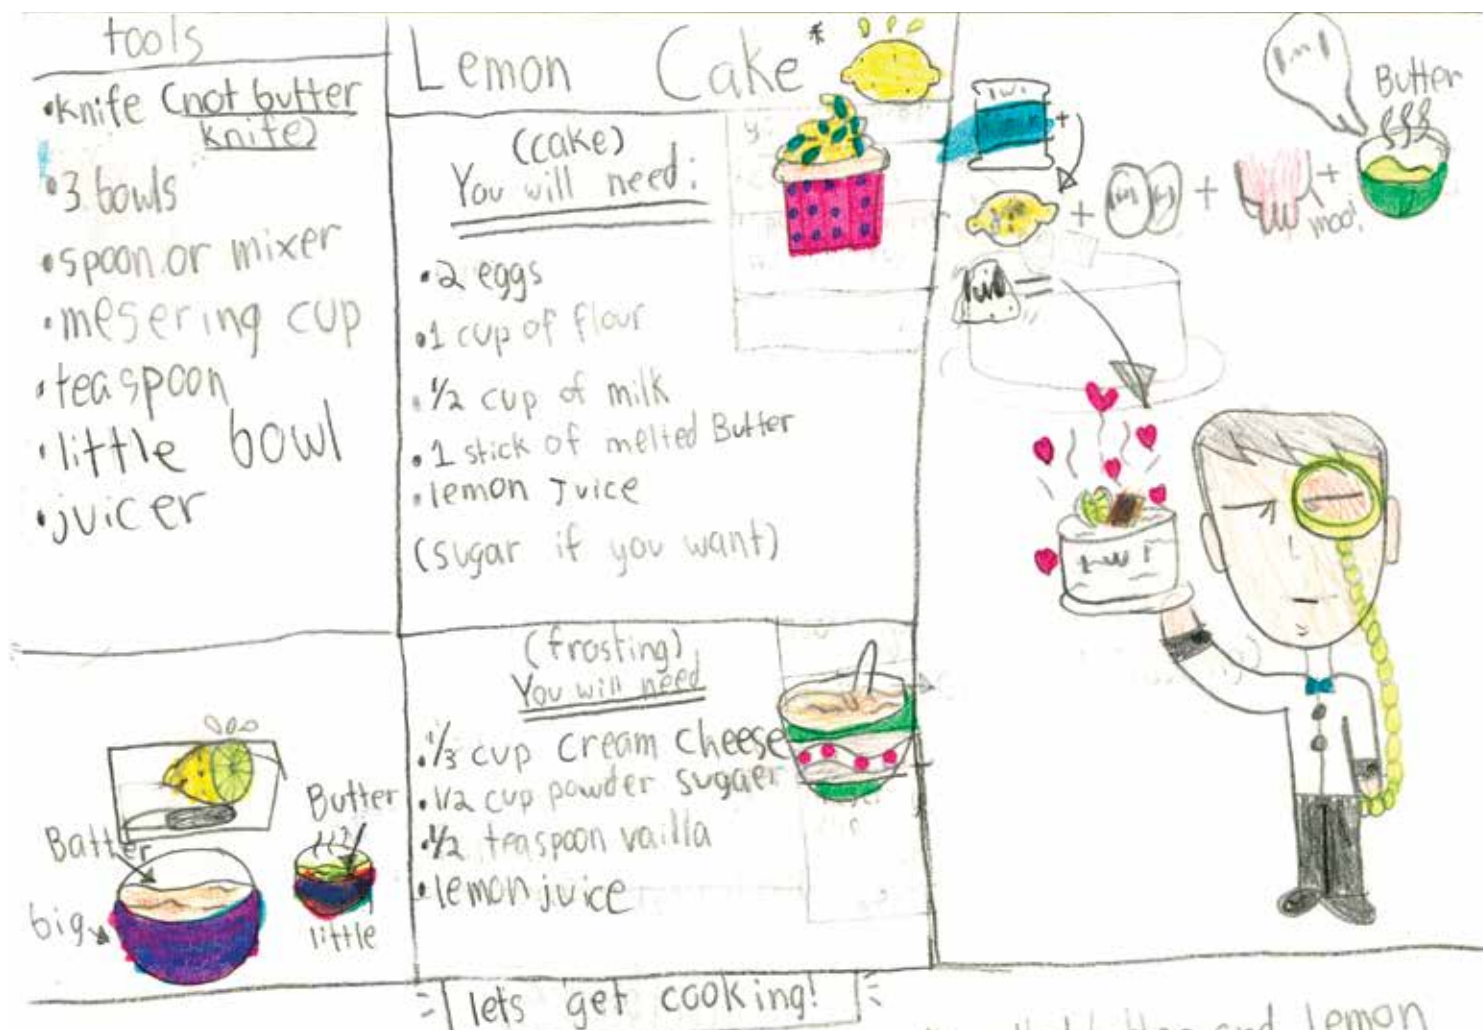 tools
•knife (not butter
knife)
•3 bowls
•spoon or mixer
•mesering cup
•teaspoon
•little bowl
•juicer
Lemon Cake
(cake)
You will need:
•2 eggs
•1 cup of flour
•1/2 cup of milk
•1 stick of melted Butter
•lemon Juice
(sugar if you want)
(frosting)
You will need
•1/3 cup cream cheese
•1/2 cup powder sugaer
•1/2 teaspoon vailla
•lemon juice
Butter
+
+
+
+
moo!
=
Butter
Batter
big
little
lets get cooking!
butter and Lemon